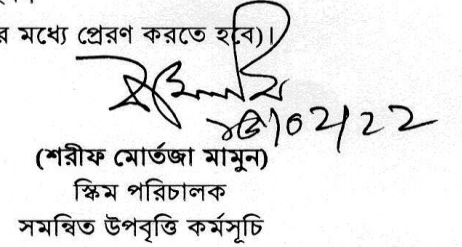 র মধ্যে প্রেরণ করতে হবে)।
১৬/০২/২২
(শরীফ মোর্তজা মামুন)
স্কিম পরিচালক
সমন্বিত উপবৃত্তি কর্মসূচি